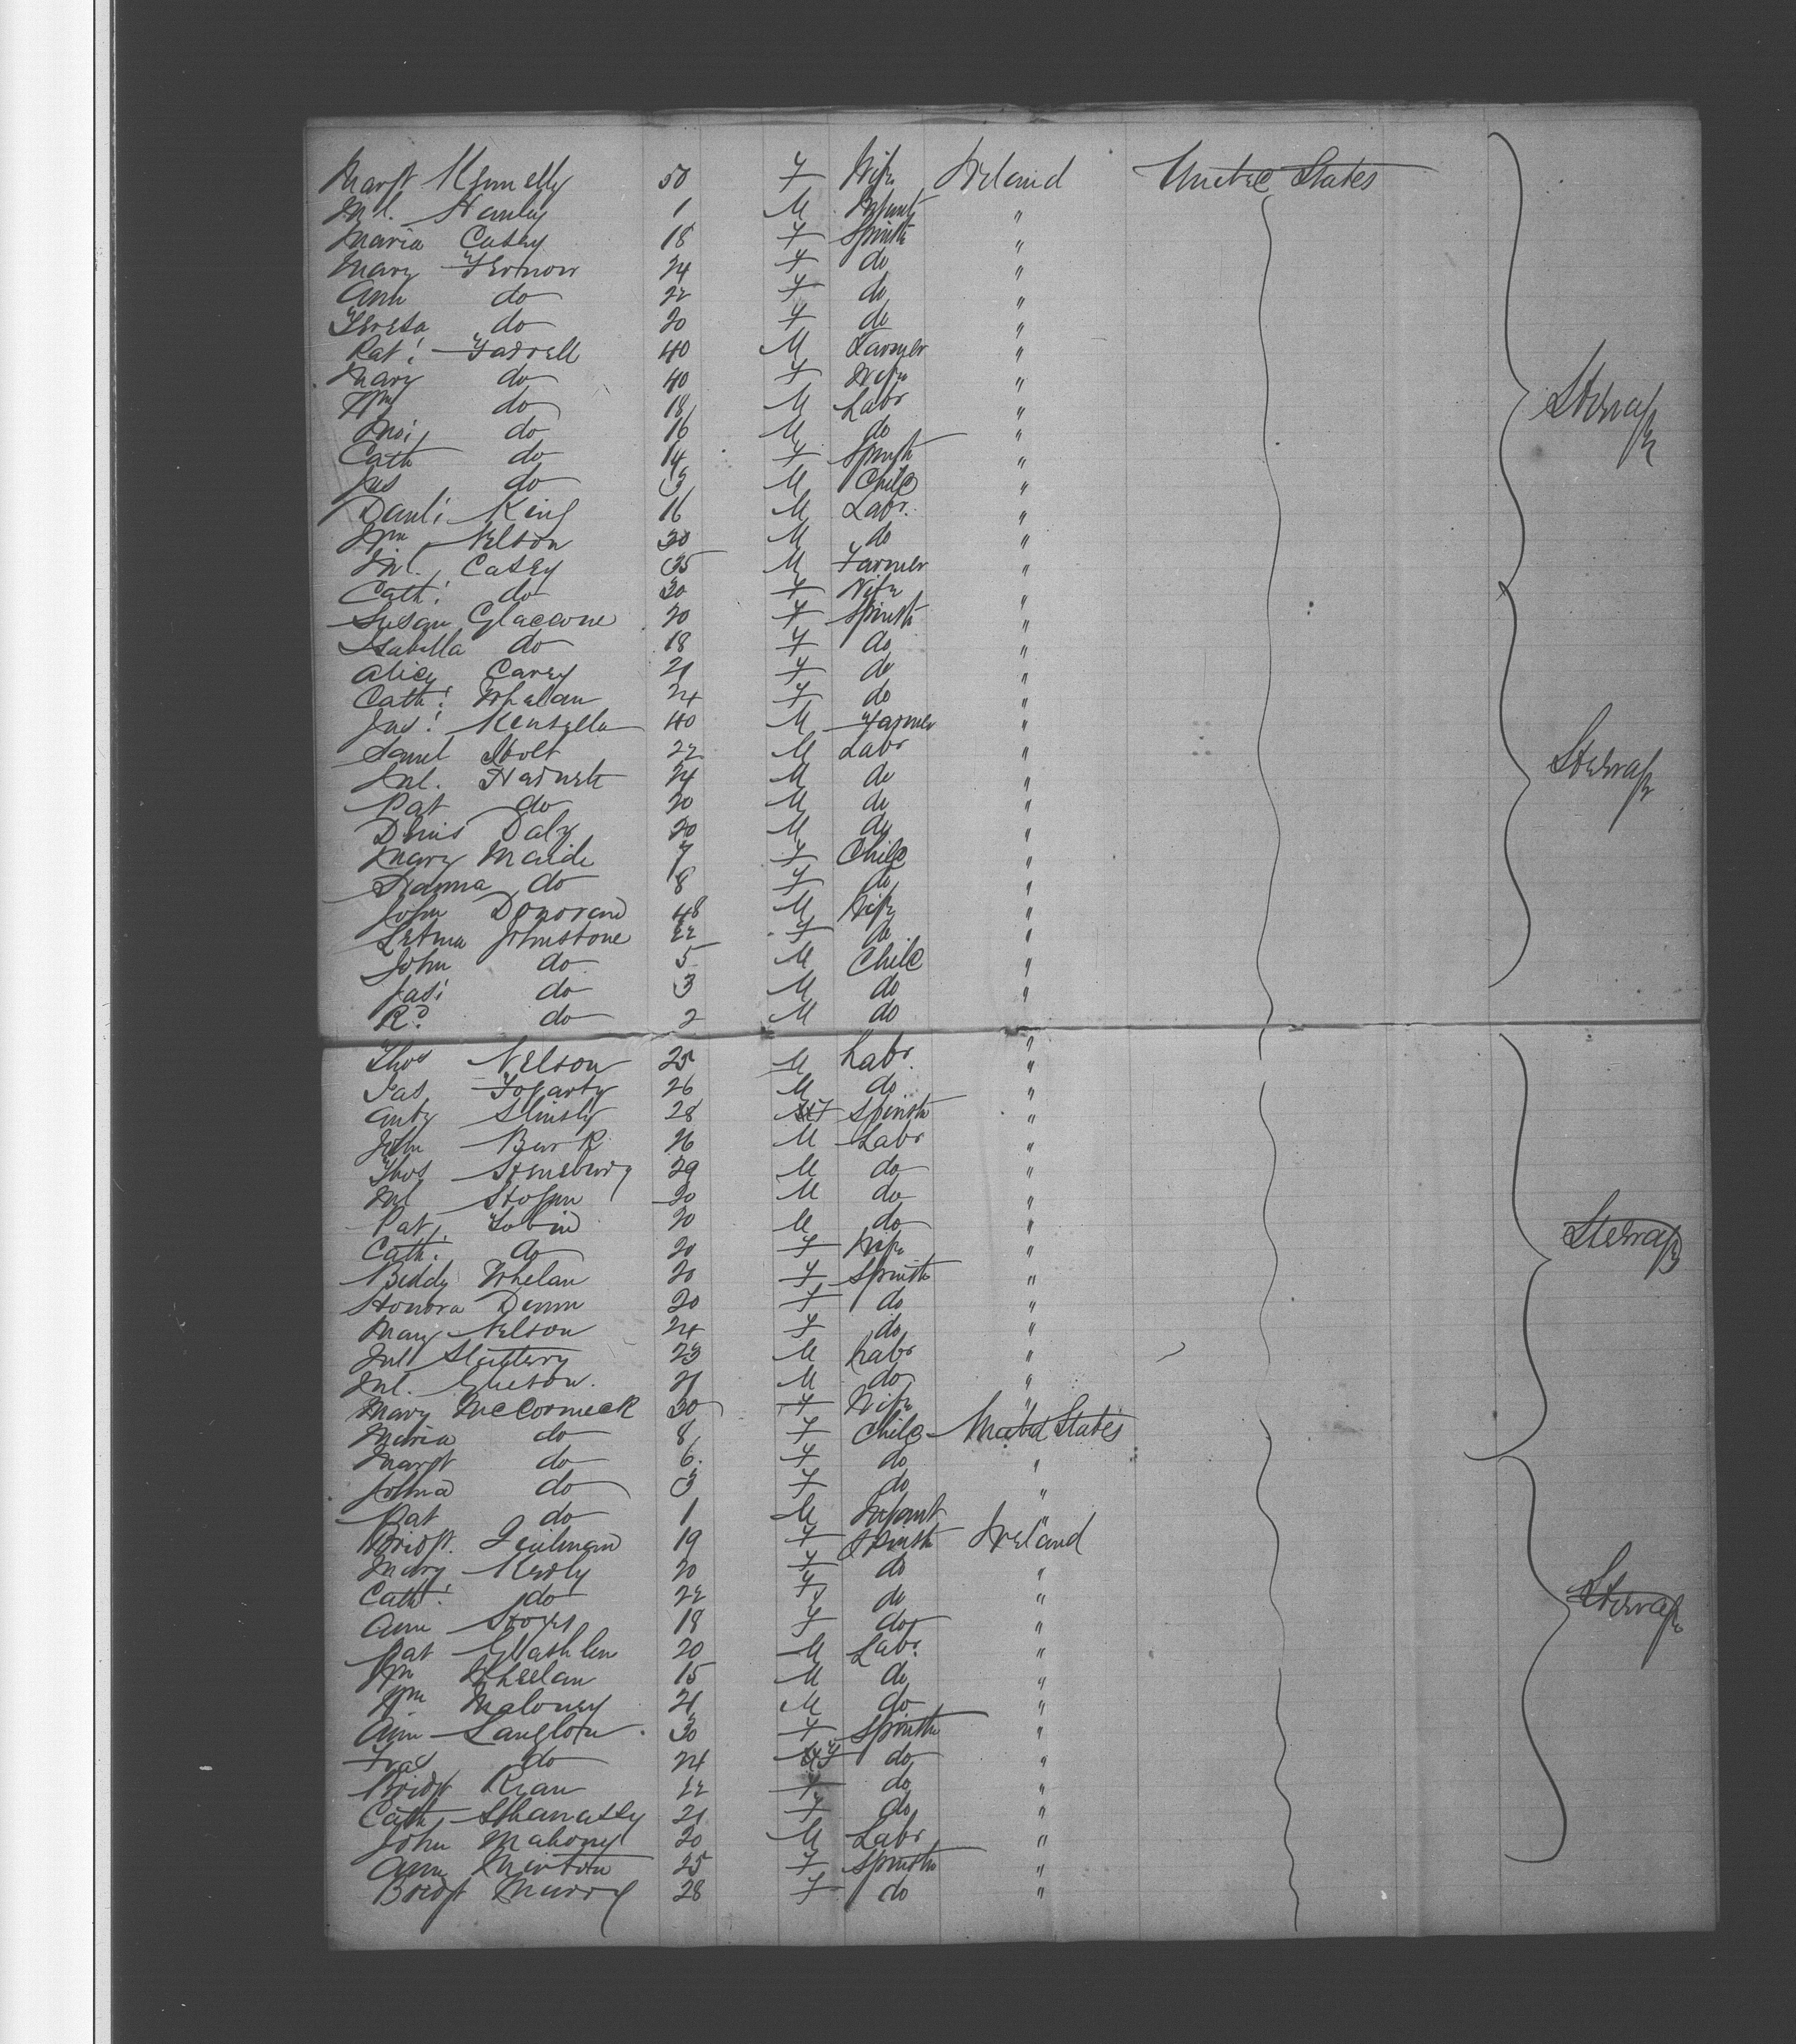 Margt Kennelly 50 F Wife Ireland United States
Ml. Hanley 1 M Infant "
Maria Casey 18 F Spinstr "
Mary Fernon 24 F do "
Ann do 22 F do "
Teresa do 20 F do "
Pat. Farrell 40 M Farmer "
Mary do 40 F Wife "
Wm do 18 M Labr "
do 16 M do "
Cath do 14 F Spinstr "
Jas do 3 M Child "
Danl. King 16 M Labr. "
Wm Nelson 30 M do "
Casey 35 M Farmer "
Cath. do 30 F Wife "
Susan Glaccone 20 F Spinstr "
Isabella do 18 F do "
Alicy Carey 21 F do "
Cath. Whelan 24 F do "
Jas. Kensella 40 M Farmer "
Saml Holt 22 M Labr "
Jnl. 24 M do "
Pat do 20 M do "
Denis Daly 20 M do "
Mary Maide 7 F Child "
Hanna do 8 F do "
John Donovan 48 M Wife "
Johnstone 22 F do "
John do 5 M Child "
Jas. do 3 M do "
Rd. do 2 M do "
Thos Nelson 25 M Labr. "
Pat Fogarty 26 M do "
Anty 28 F Spinstr "
John Burk 26 M Labr "
Thos 29 M do "
Ml 20 M do "
Pat. Tobin 20 M do "
Cath. do 20 F Wife "
Biddy Whelan 20 F Spinstr "
Honora Dunn 20 F do "
Mary Nelson 24 F do "
Jnl Slattery 23 M Labr "
Jnl. Gleeson. 21 M do "
Mary McCormeck 30 F Wife "
Maria do 8 F Child United States
Margt do 6. F do "
do 3 F do "
Pat do 1 M Infant "
Bridgt. 19 F Spinstr Ireland
Mary 20 F do "
Cath. do 22 F do "
Ann 18 F do "
Pat 20 M Labr. "
Wm Wheelan 15 M do "
Wm Maloney 21 M do "
Ann Langlon 30 F Spinstr "
Fras do 24 F do "
Bridgt Rian 22 F do "
Cath 21 F do "
John Mahony 20 M Labr "
Ann 25 F Spinstr "
Bridgt Murry 28 F do "
Steerage
Steerage
Steerage
Steerage